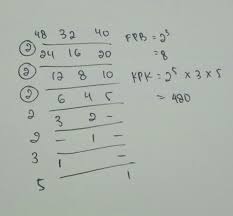 48 32 40
2 24 16 20
2 12 8 10
2 6 4 5
2 3 2 -
2 - 1 -
3 1 -
5 1
FPB = 2³
= 8
KPK = 2⁵ × 3 × 5
= 480